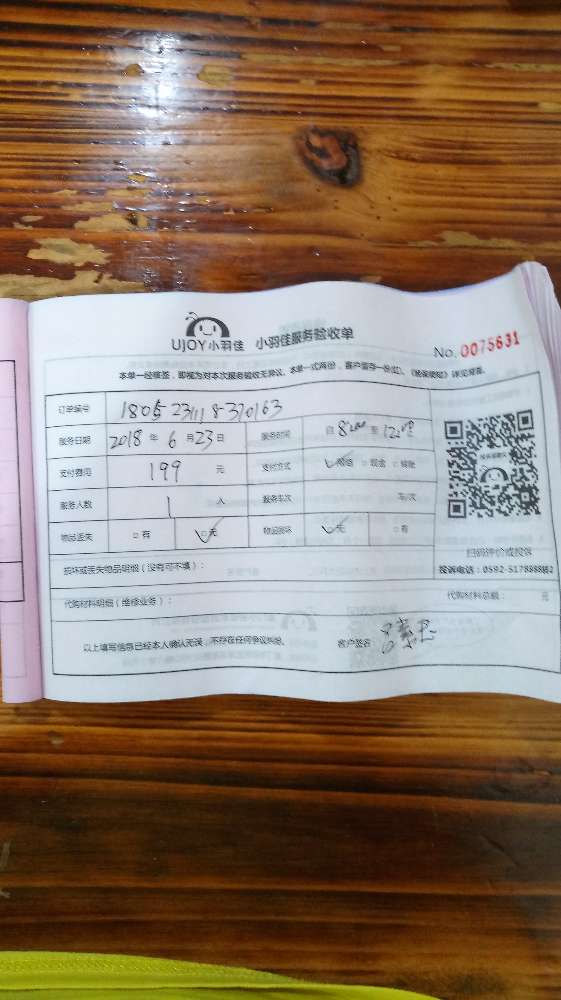 UJOY小羽佳 小羽佳服务验收单
No. 0075631
本单一经核签，即视为对本次服务验收无异议。本单一式两份，客户留存一份(红)，《核保须知》详见背面。
订单编号
服务日期 2018 年 6 月 23 日 服务时间 自 8:00 至 12:00
支付费用 199 元 支付方式 ✓ □ 现金 □ 转账
服务人数 1 人 服务车次 车/次
物品丢失 □ 有 ✓无 物品损坏 ✓无 □ 有
扫码评价或投诉
损坏或丢失物品明细（没有可不填）： 投诉电话：0592-5178888转2
代购材料明细（维修业务）： 代购材料总额： 元
以上填写信息已经本人确认无误，不存在任何争议纠纷。 客户签名